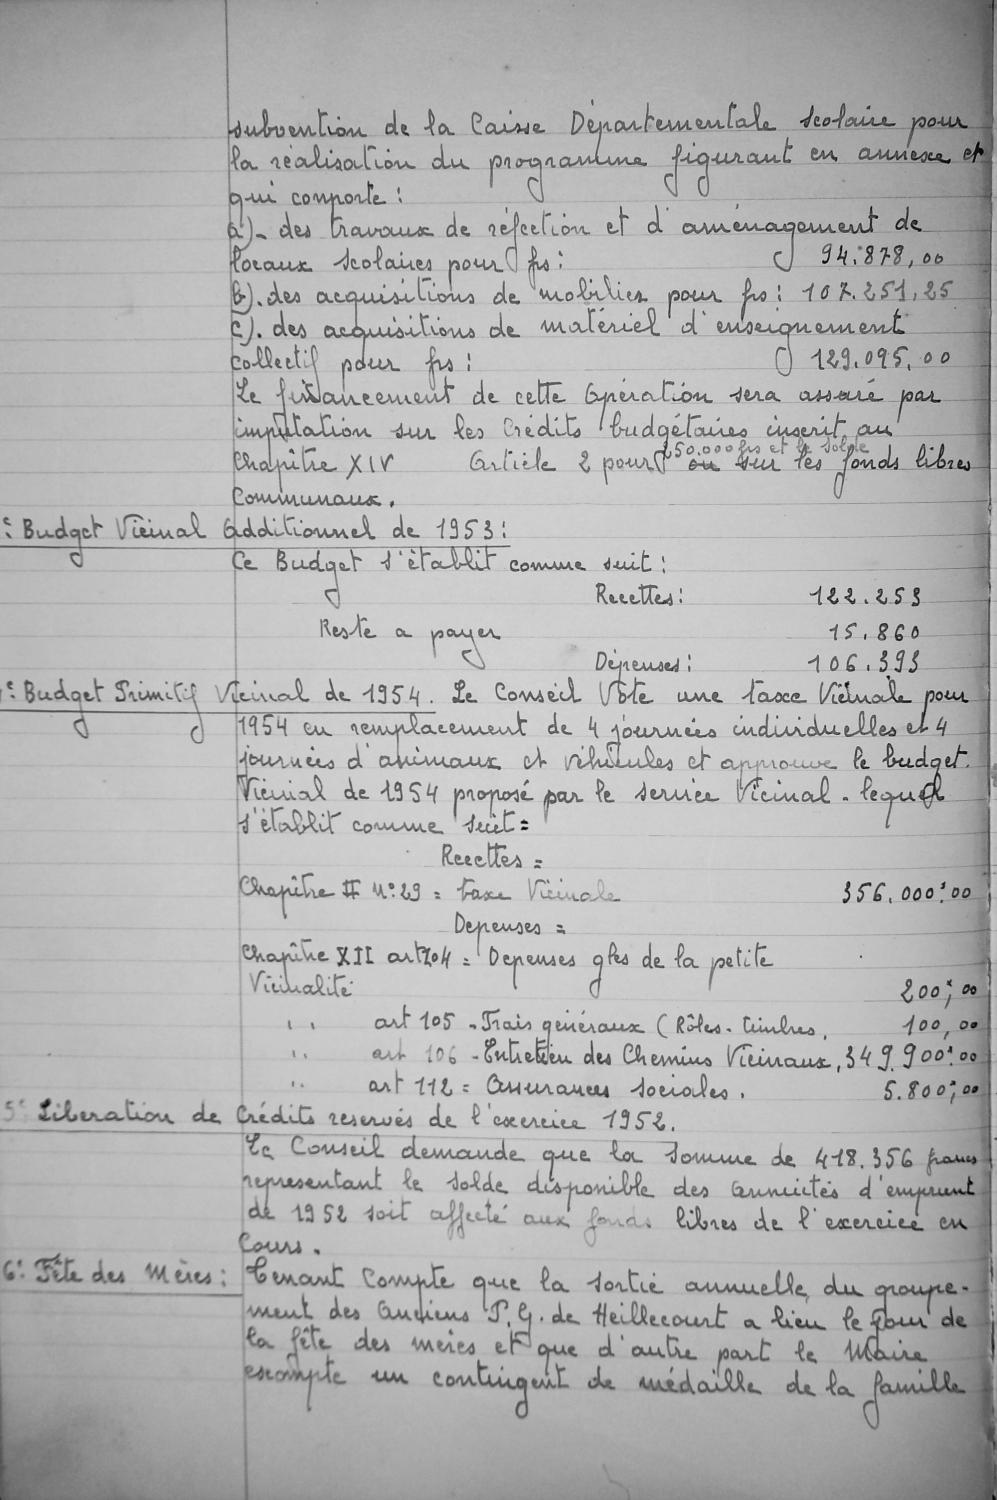 subvention de la Caisse Départementale Scolaire pour
la réalisation du programme figurant en annexe et
qui comporte :
a)- des travaux de réfection et d'aménagement de
locaux scolaires pour frs : 94.878,00
b). des acquisitions de mobilier pour frs : 107.251,25
c). des acquisitions de matériel d'enseignement
collectif pour frs : 129.095,00
Le financement de cette Opération sera assuré par
imputation sur les Crédits budgétaires inscrit au
250.000 frs et le solde
Chapître XIV Article 2 pour ou sur les fonds libres
Communaux.
Budget Vicinal Additionnel de 1953 :
Ce Budget s'établit comme suit :
Recettes : 122.253
Reste a payer 15.860
Dépenses : 106.393
Budget Primitif Vicinal de 1954. Le Conseil Vote une taxe Vicinale pour
1954 en remplacement de 4 journées individuelles et 4
journées d'animaux et véhicules et approuve le budget.
Vicinial de 1954 proposé par le service Vicinal - lequel
s'établit comme suit =
Recettes =
Chapître II N°: 29 = taxe Vicinale 356.000:00
Depenses =
Chapître XII art 104 = Depenses gles de la petite
Vicinalité 200,00
" art 105 - Frais généraux (Rôles - timbres. 100,00
" art 106 - Entretien des Chemins Vicinaux, 349.900:00
" art 112 = Assurances sociales. 5.800,00
5° Liberation de Crédits reservés de l'exercice 1952.
Le Conseil demande que la Somme de 418.356 francs
representant le solde disponible des Annuités d'emprunt
de 1952 soit affecté aux fonds libres de l'exercice en
Cours.
6° Fête des Mères : Tenant Compte que la sortie annuelle du groupe-
ment des Anciens P.G. de Heillecourt a lieu le jour de
la fête des mères et que d'autre part le Maire
escompte un contingent de médaille de la famille